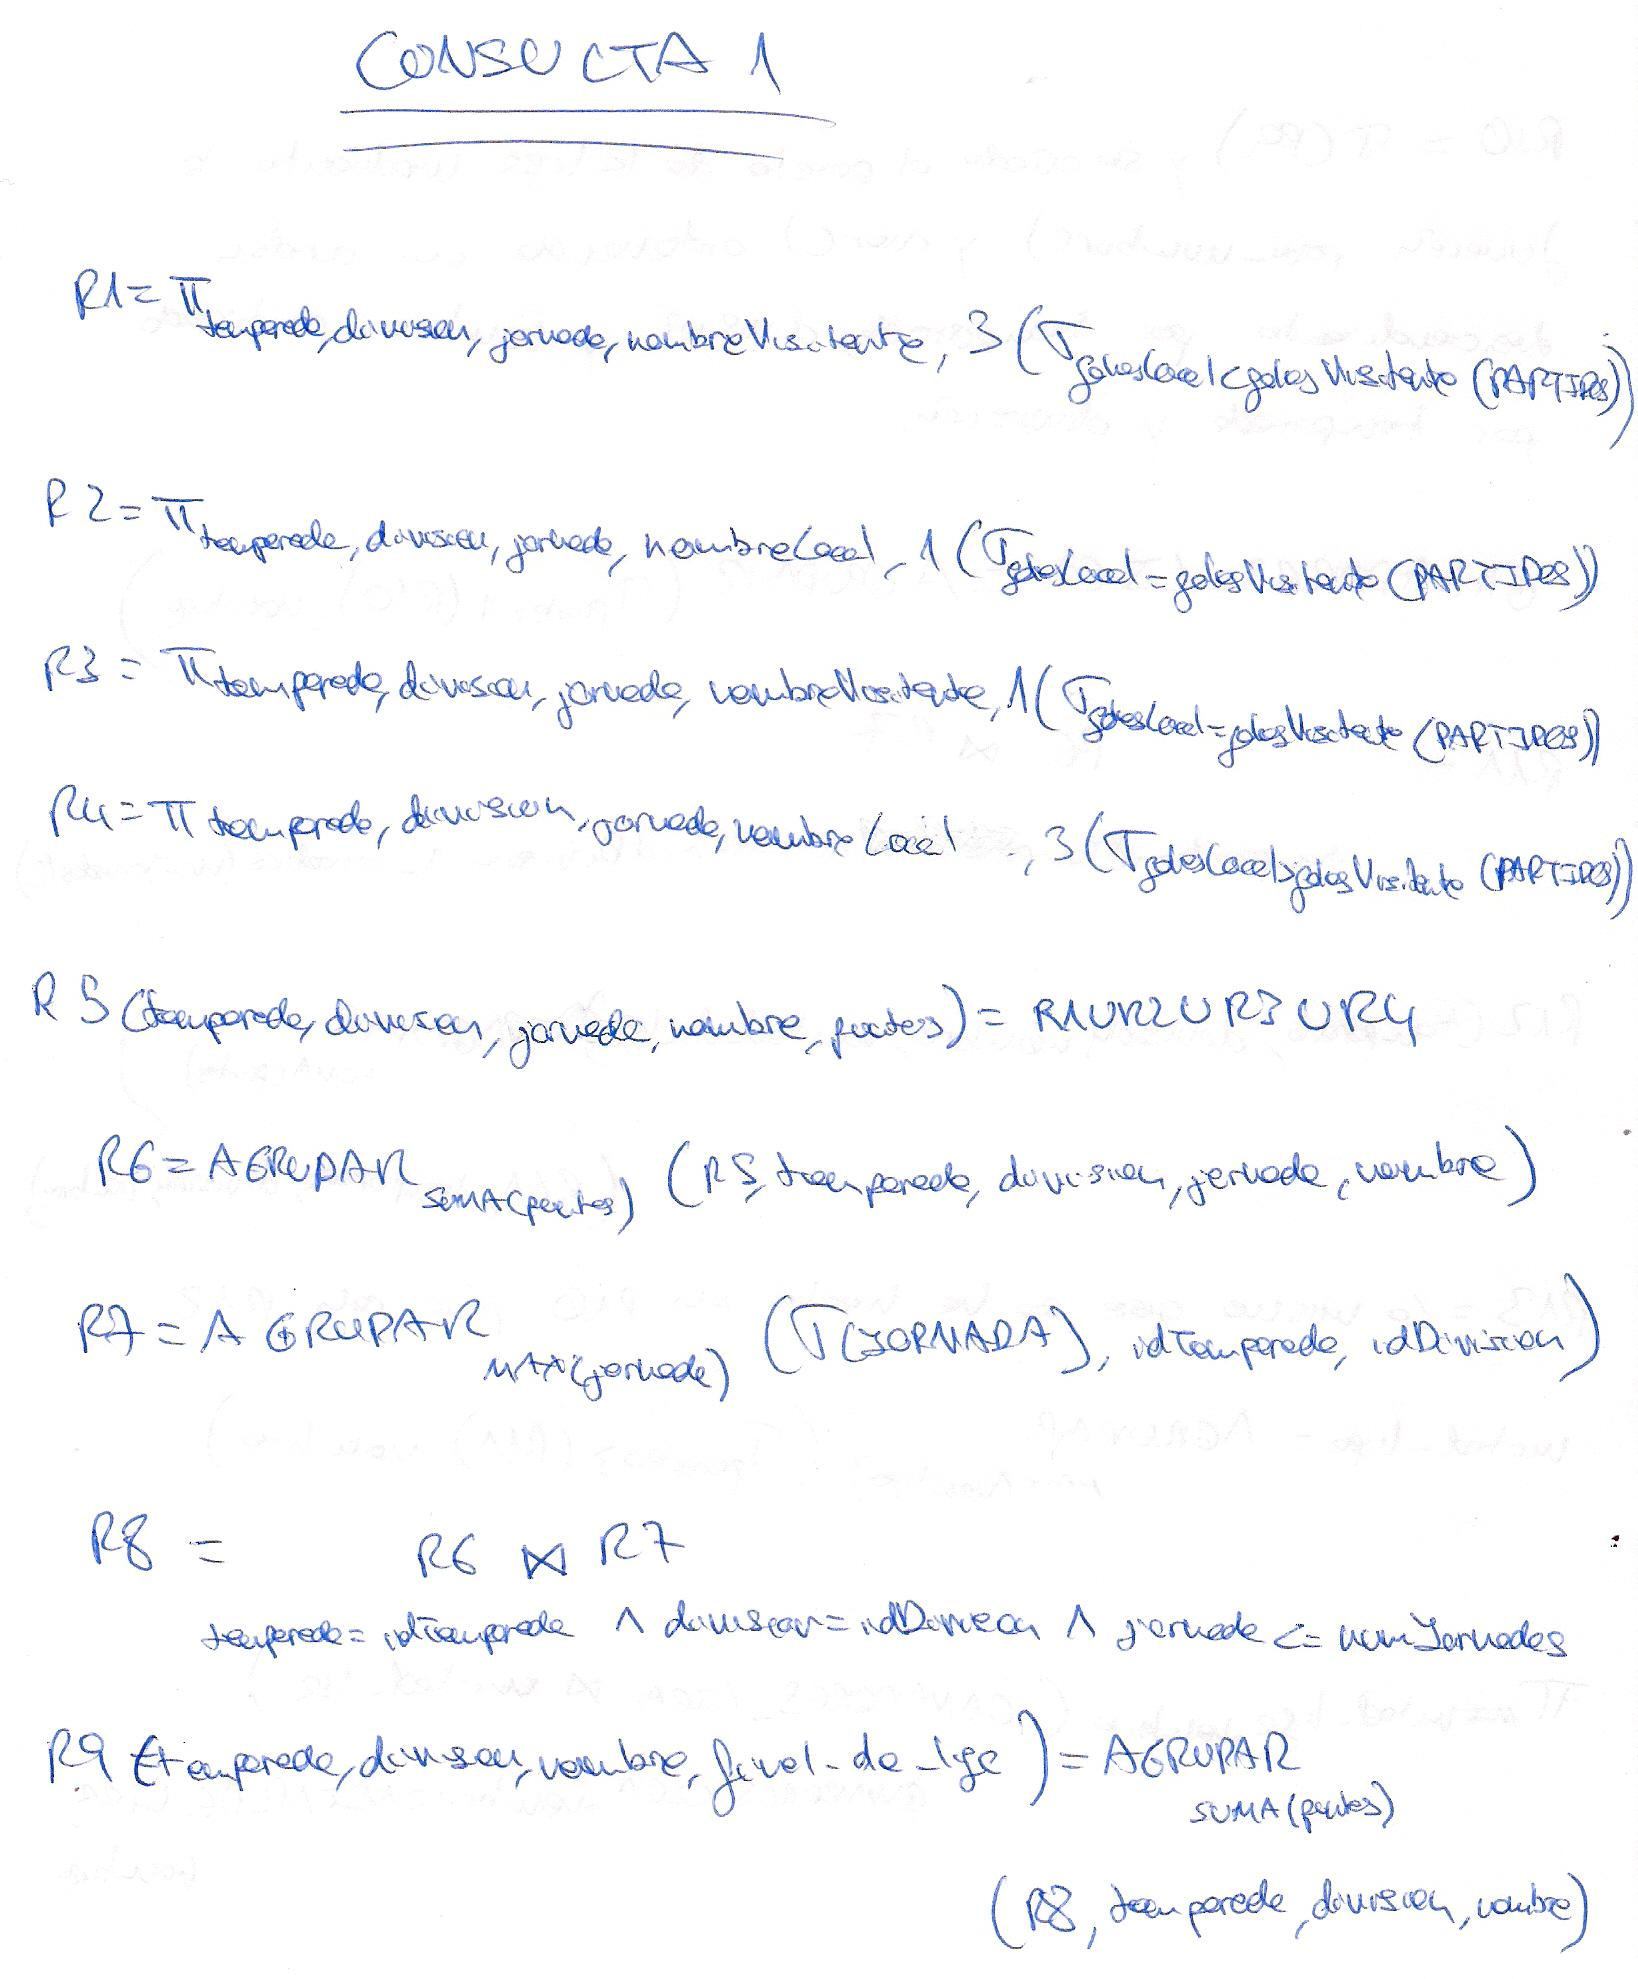 CONSULTA 1
R1 = π temporada, division, jornada, nombreVisitante, 3 (σ golesLocal < golesVisitante (PARTIDOS))
R2 = π temporada, division, jornada, nombreLocal, 1 (σ golesLocal = golesVisitante (PARTIDOS))
R3 = π temporada, division, jornada, nombreVisitante, 1 (σ golesLocal = golesVisitante (PARTIDOS))
R4 = π temporada, division, jornada, nombreLocal, 3 (σ golesLocal > golesVisitante (PARTIDOS))
R5 (temporada, division, jornada, nombre, puntos) = R1 U R2 U R3 U R4
R6 = AGRUPAR SUMA(puntos) (R5, temporada, division, jornada, nombre)
R7 = AGRUPAR MAX(jornada) (σ(JORNADA), idTemporada, idDivision)
R8 = R6 ⋈ R7
temporada = idTemporada ∧ division = idDivision ∧ jornada <= numJornadas
R9 (temporada, division, nombre, final_de_liga) = AGRUPAR SUMA(puntos)
(R8, temporada, division, nombre)